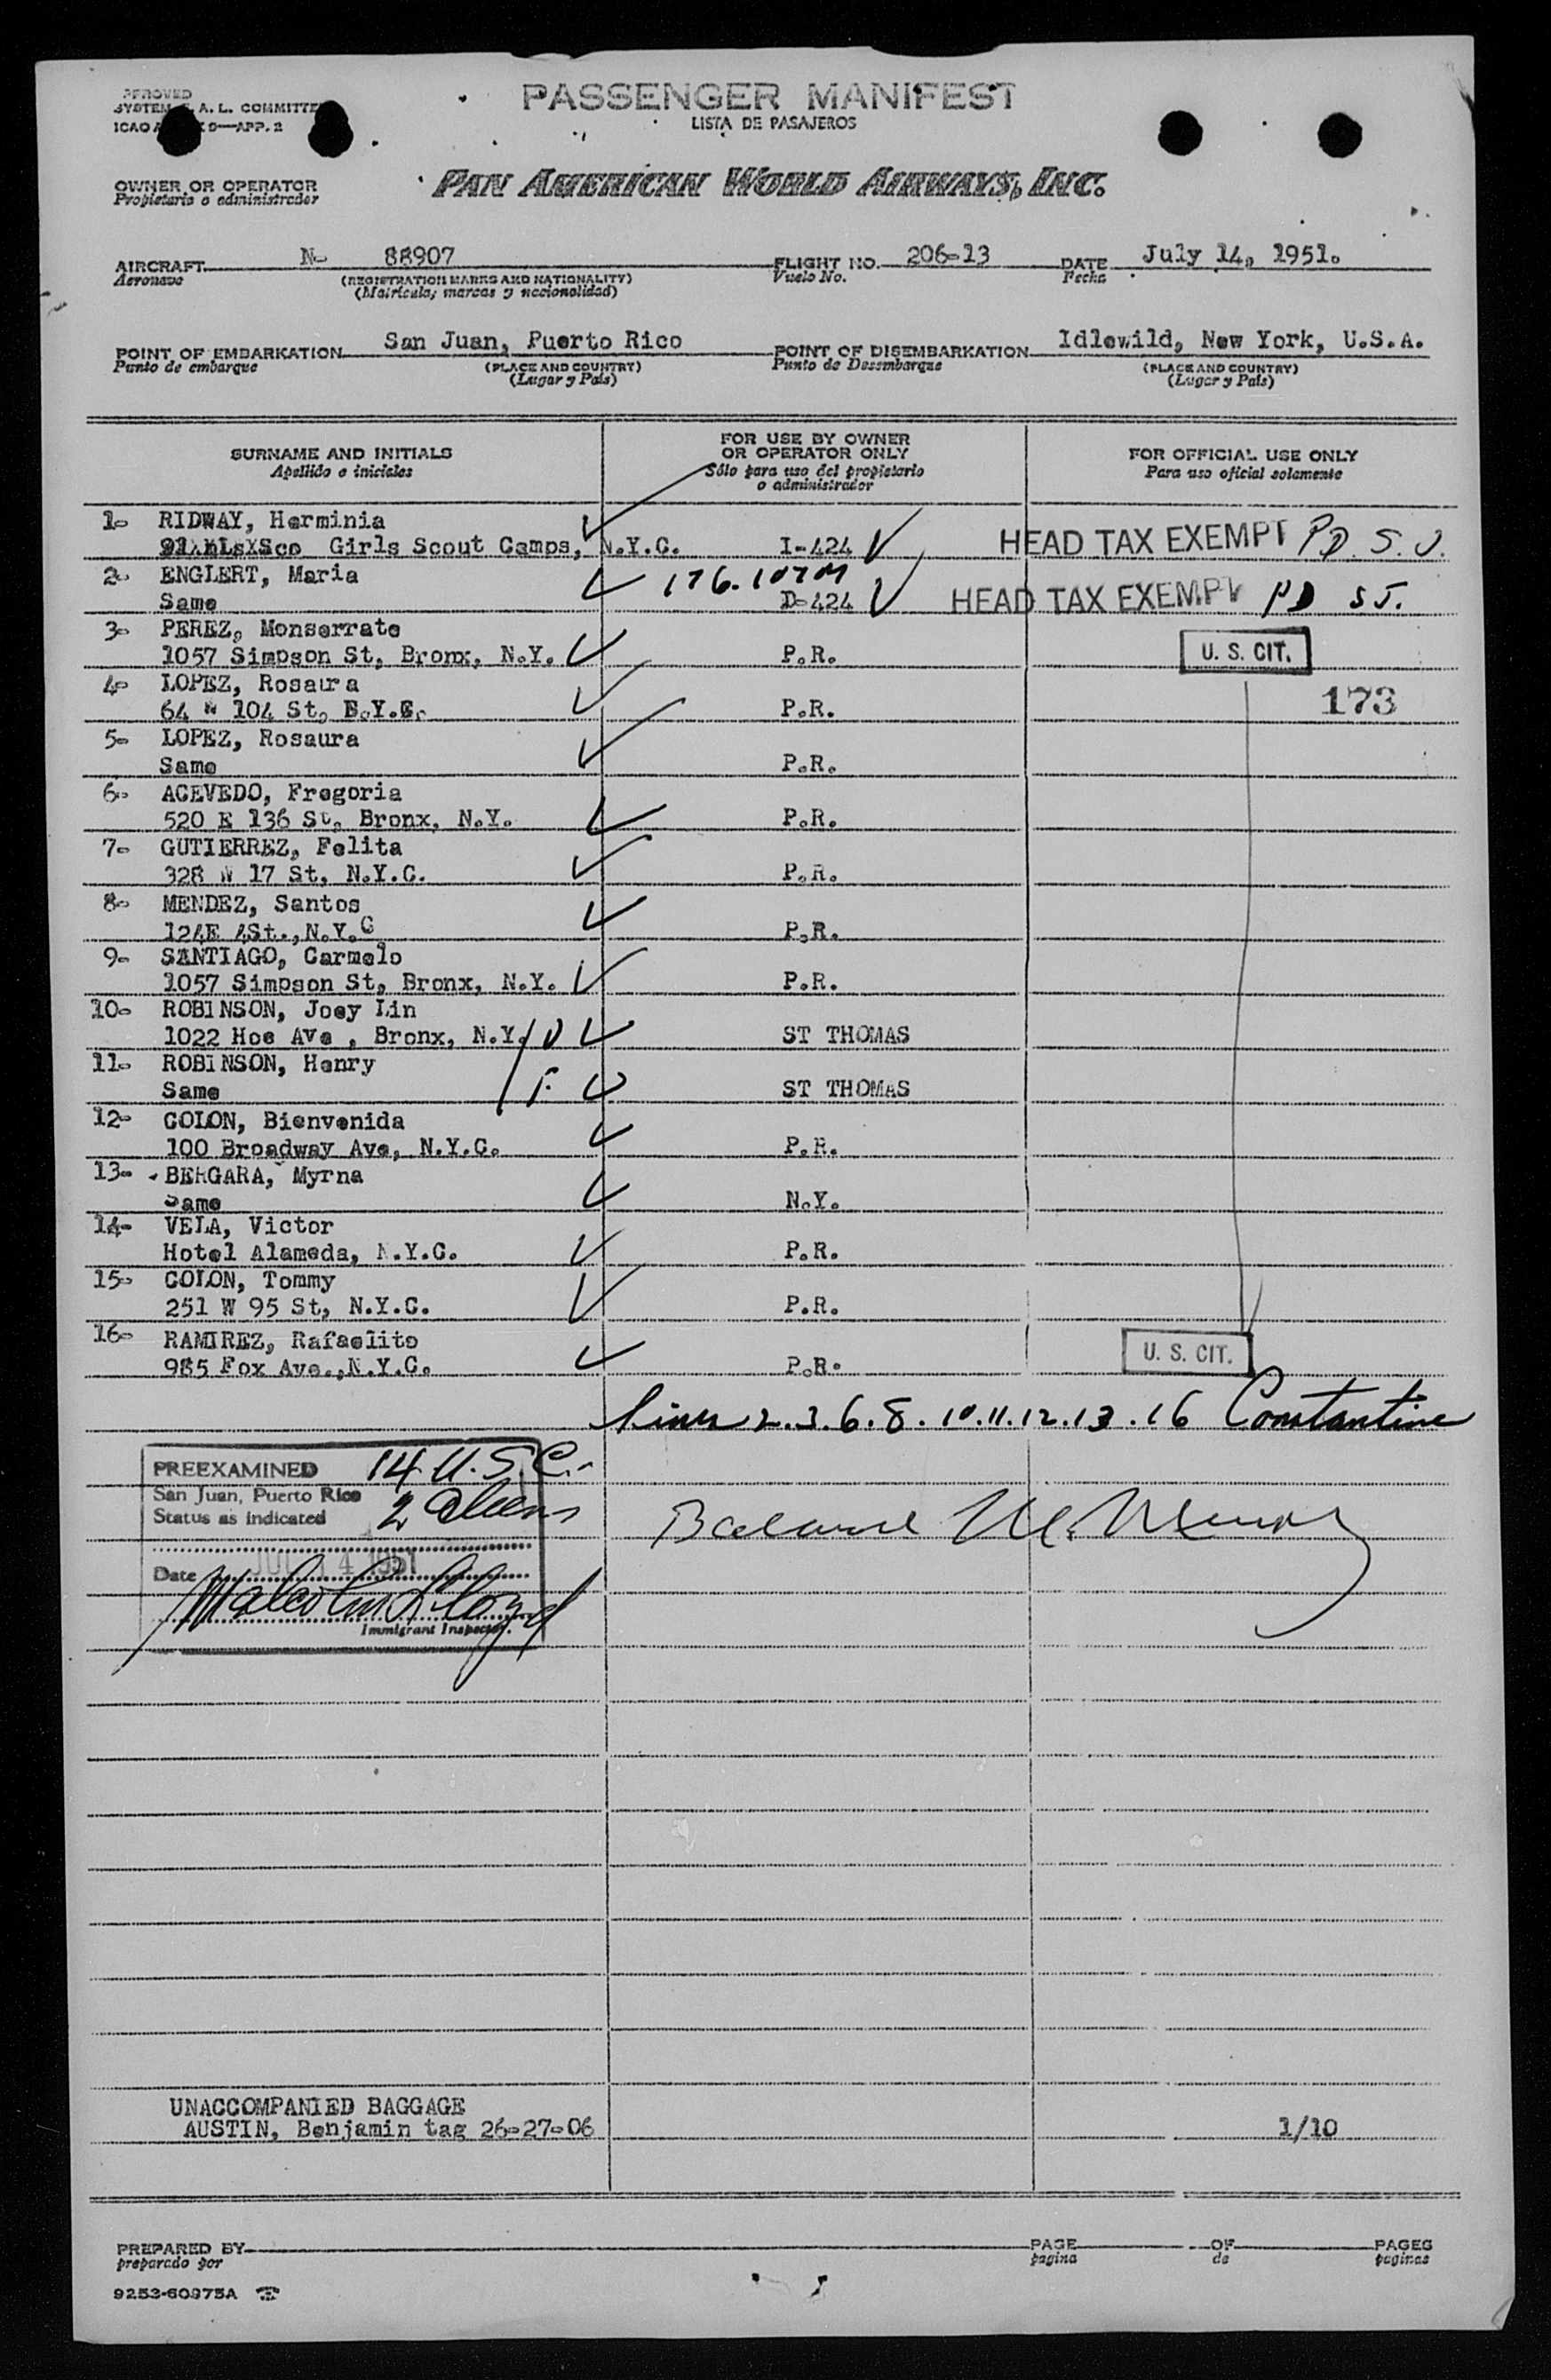 PASSENGER MANIFEST
LISTA DE PASAJEROS
APPROVED
SYSTEM A. L. COMMITTEE
ICAO 9—APP. 2
OWNER OR OPERATOR
Propietario o administrador
PAN AMERICAN WORLD AIRWAYS, INC.
AIRCRAFT N- 88907 FLIGHT NO. 206-13 DATE July 14, 1951.
Aeronave (REGISTRATION MARKS AND NATIONALITY) Vuelo No. Fecha
(Matrícula; marcas y nacionalidad)
POINT OF EMBARKATION San Juan, Puerto Rico POINT OF DISEMBARKATION Idlewild, New York, U.S.A.
Punto de embarque (PLACE AND COUNTRY) Punto de Desembarque (PLACE AND COUNTRY)
(Lugar y País) (Lugar y País)
SURNAME AND INITIALS FOR USE BY OWNER OR OPERATOR ONLY FOR OFFICIAL USE ONLY
Apellido e iniciales Sólo para uso del propietario o administrador Para uso oficial solamente
1- RIDWAY, Herminia
Girls Scout Camps, N.Y.C. I-424 HEAD TAX EXEMPT PD. S.J.
2- ENGLERT, Maria 176.107M
Same D-424 HEAD TAX EXEMPT PD SJ.
3- PEREZ, Monserrate
1057 Simpson St, Bronx, N.Y. P.R. U. S. CIT.
4- LOPEZ, Rosaura
64 W 104 St, P.R. 173
5- LOPEZ, Rosaura
Same P.R.
6- ACEVEDO, Fregoria
520 E 136 St, Bronx, N.Y. P.R.
7- GUTIERREZ, Felita
328 W 17 St, N.Y.C. P.R.
8- MENDEZ, Santos
124E 4St., N.Y.C P.R.
9- SANTIAGO, Carmelo
1057 Simpson St, Bronx, N.Y. P.R.
10- ROBINSON, Joey Lin
1022 Hoe Ave , Bronx, N.Y. ST THOMAS
11- ROBINSON, Henry
Same ST THOMAS
12- COLON, Bienvenida
100 Broadway Ave, N.Y.C. P.R.
13- BERGARA, Myrna
Same N.Y.
14- VELA, Victor
Hotel Alameda, N.Y.C. P.R.
15- COLON, Tommy
251 W 95 St, N.Y.C. P.R.
16- RAMIREZ, Rafaelito
985 Fox Ave., N.Y.C. P.R. U. S. CIT.
lines 2.3.6.8.10.11.12.13.16 Constantine
PREEXAMINED 14 U.S.C.-
San Juan, Puerto Rico
Status as indicated 2 aliens
Date JUL 14 1951
Malcolm Lloyd
Immigrant Inspector.
Balance
UNACCOMPANIED BAGGAGE
AUSTIN, Benjamin tag 26-27-06 1/10
PREPARED BY PAGE OF PAGES
preparado por pagina de paginas
9253-60975A